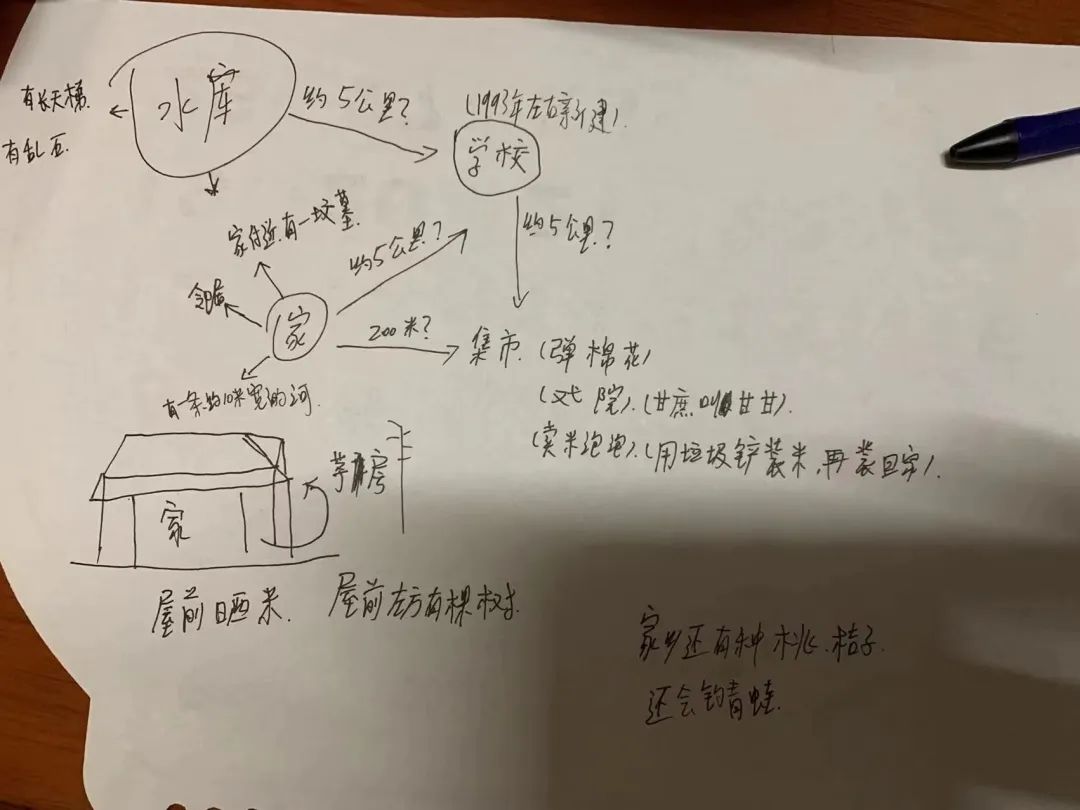 水库
有长天梯.
有乱石
约5公里?
(1993年左右新建).
学校
约5公里?
家附近有一坟墓.
约5公里.?
邻居
家
200米?
集市 (弹棉花)
有一条约10米宽的河.
(戏院).(甘庶叫甘甘).
(卖米泡地).(用垃圾铲装米,再装回家).
茅房
家
屋前晒米. 屋前左方有棵树.
家乡还有种桃.桔子.
还会钓青蛙.